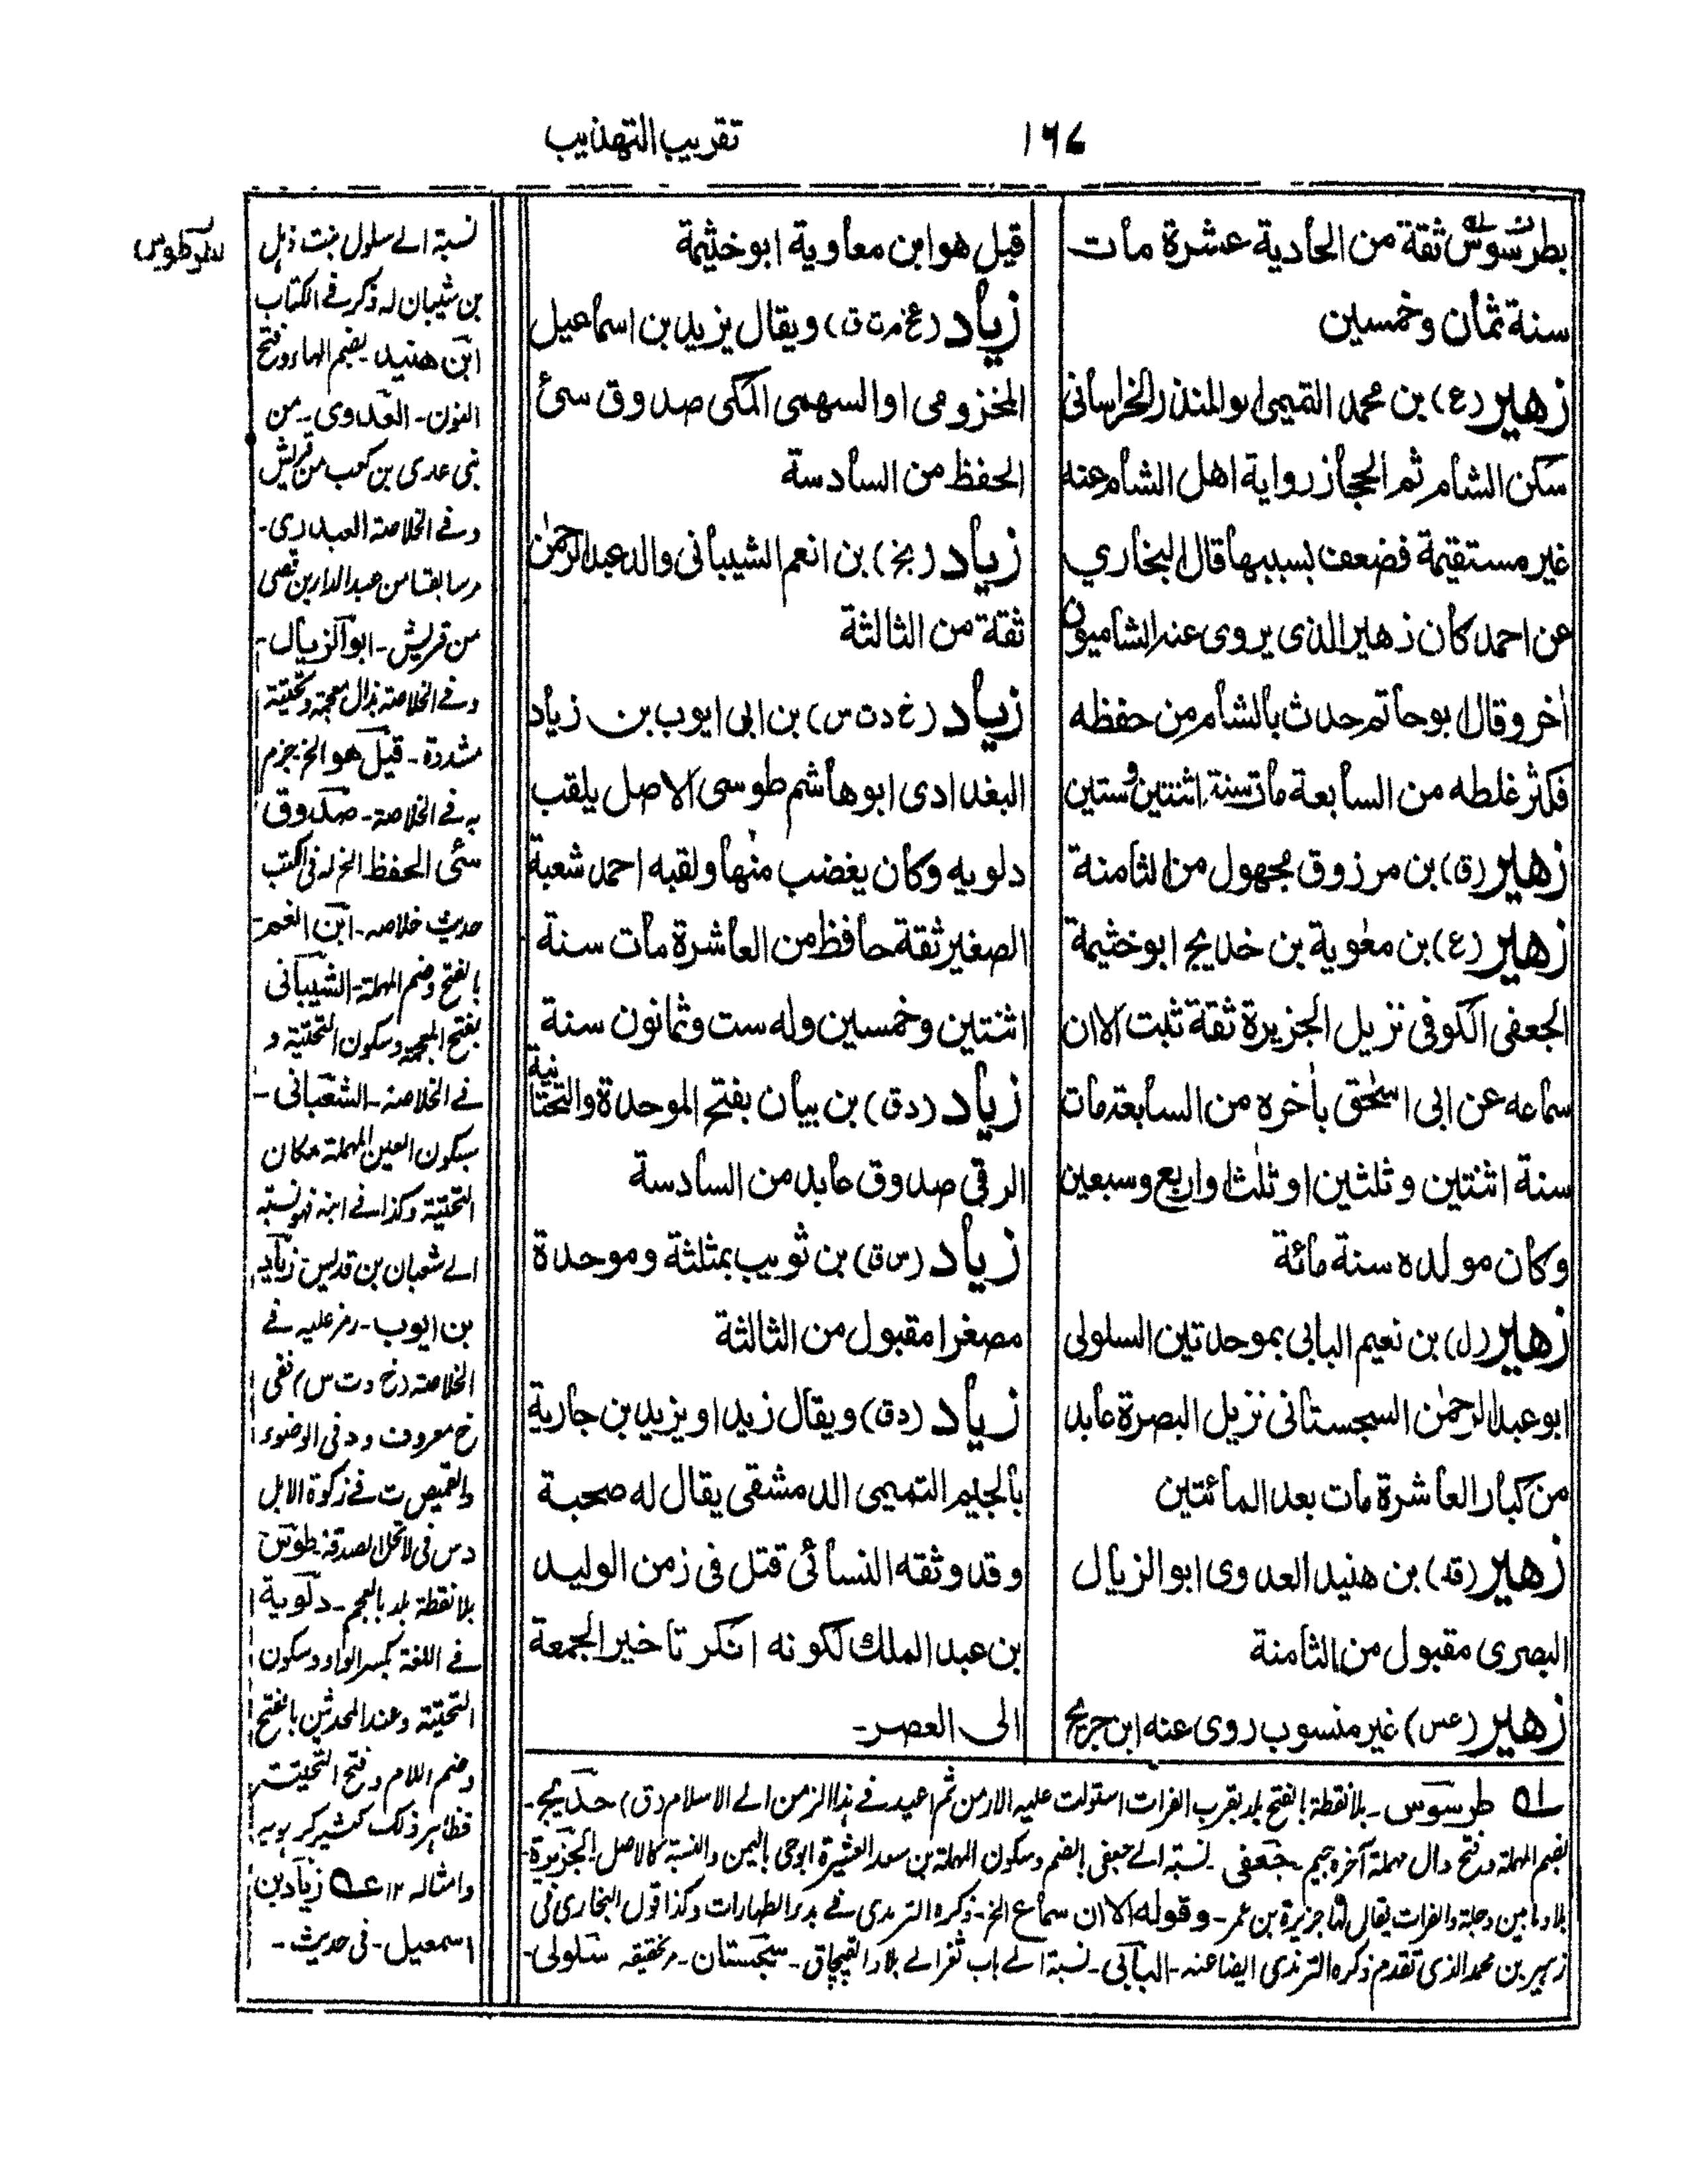 تقريب التهذيب
١٦٧
بطرسوس ثقة من الحادية عشرة مات
سنة ثمان وخمسين
زهير (ع) بن محمد التميمى ابو المنذر الخراسانى
سكن الشام ثم الحجاز رواية اهل الشام عنه
غير مستقيمة فضعف بسببها قال البخاري
عن احمد كان زهير الذى يروى عنه الشاميون
اٰخر وقال ابو حاتم حدث بالشام من حفظه
فكثر غلطه من السابعة مات سنة اثنتين وستين
زهير (ق) بن مرزوق مجهول من الثامنة
زهير (ع) بن معٰوية بن خديج ابو خثيمة
الجعفى الكوفى نزيل الجزيرة ثقة ثبت الا ان
سماعه عن ابى اسحٰق باٰخره من السابعة مات
سنة اثنتين وثلثين او ثلٰث او اربع وسبعين
وكان مولده سنة مائة
زهير (ل) بن نعيم البابى بموحدتين السلولى
ابو عبد الرحمٰن السجستانى نزيل البصرة عابد
من كبار العاشرة مات بعد المائتين
زهير (قد) بن هنيد العدوى ابو الزيال
البصرى مقبول من الثامنة
زهير (عس) غير منسوب روى عنه ابن جريج
قيل هو ابن معاوية ابو خثيمة
زياد (عخ م ت ق) ويقال يزيد بن اسماعيل
المخزومى او السهمى المكى صدوق سئ
الحفظ من السادسة
زياد (بخ) بن انعم الشيبانى والد عبد الرحمٰن
ثقة من الثالثة
زياد (خ د ت س) بن ابى ايوب بن زياد
البغدادى ابو هاشم طوسى الاصل يلقب
دلويه وكان يغضب منها ولقبه احمد شعبة
الصغير ثقة حافظ من العاشرة مات سنة
اثنتين وخمسين وله ست وثمانون سنة
زياد (د ق) بن بيان بفتح الموحدة والتحتانية
الرقى صدوق عابد من السادسة
زياد (س ق) بن ثويب بمثلثة وموحدة
مصغرا مقبول من الثالثة
زياد (د ق) ويقال زيد او يزيد بن جارية
بالجيم التميمى الدمشقى يقال له صحبة
وقد وثقه النسائى قتل فى زمن الوليد
بن عبد الملك لكونه انكر تاخير الجمعة
الى العصر-
له طرسوس - بلا نقطة بالفتح بلد بقرب الفرات استولت عليه الارمن ثم اعيد فى هذا الزمن الى الاسلام (ق) حديج-
بضم المهملة وفتح دال مهملة آخره جيم - جعفى - نسبة الى جعفى بالضم وسكون المهملة بن سعد العشيرة ابو حى باليمن والنسبة كالاصل - الجزيرة-
بلاد ما بين دجلة والفرات يقال لها جزيرة بن عمر - وقوله الا ان سماع الخ - ذكره الترمذى فى بدء الطهارات وكذا قول البخارى فى
زهير بن محمد الذى تقدم ذكره الترمذى ايضا عنه - البابى - نسبة الى باب ثغر الى بلاد القبچاق - سجستان - مر تحقيقه سلولى-
نسبة الى سلول بنت ذهل
بن شيبان له ذكر فى الكتاب
ابن هنيد - بضم الهاء وفتح
النون - العدوى - من
بنى عدى بن كعب من قريش
وفى الخلاصة العبدرى-
مر سابقا من عبد الدار بن قصى
من قريش - ابو الزيال-
وفى الخلاصة بذال معجمة وتحتية
مشددة - قيل هو الخ جزم
به فى الخلاصة - صدوق
سئى الحفظ الخ له فى الكتب
حديث خلاصه - ابن انعم-
بالفتح وضم المهملة - الشيبانى
بفتح المعجمة وسكون التحتية و
فى الخلاصة - الشعبانى-
بسكون العين المهملة مكان
التحتية وكذا فى ابنه فهو نسبة
الى شعبان بن قديس زياد
بن ايوب - رمز عليه فى
الخلاصة (خ د ت س) ففى
خ معروف ود فى الوضوء
والقميص ت فى زكوة الابل
وس فى لا تحل الصدقة - طوس
بلا نقطة بلد بالعجم - دلوية
فى اللغة بكسر الواو وسكون
التحتية وعند المحدثين بالفتح
وضم اللام وفتح التحتية
فظاهر ذلك كثير كر بويه
وامثاله ١٢ عه زياد بن
اسمعيل - فى حديث-